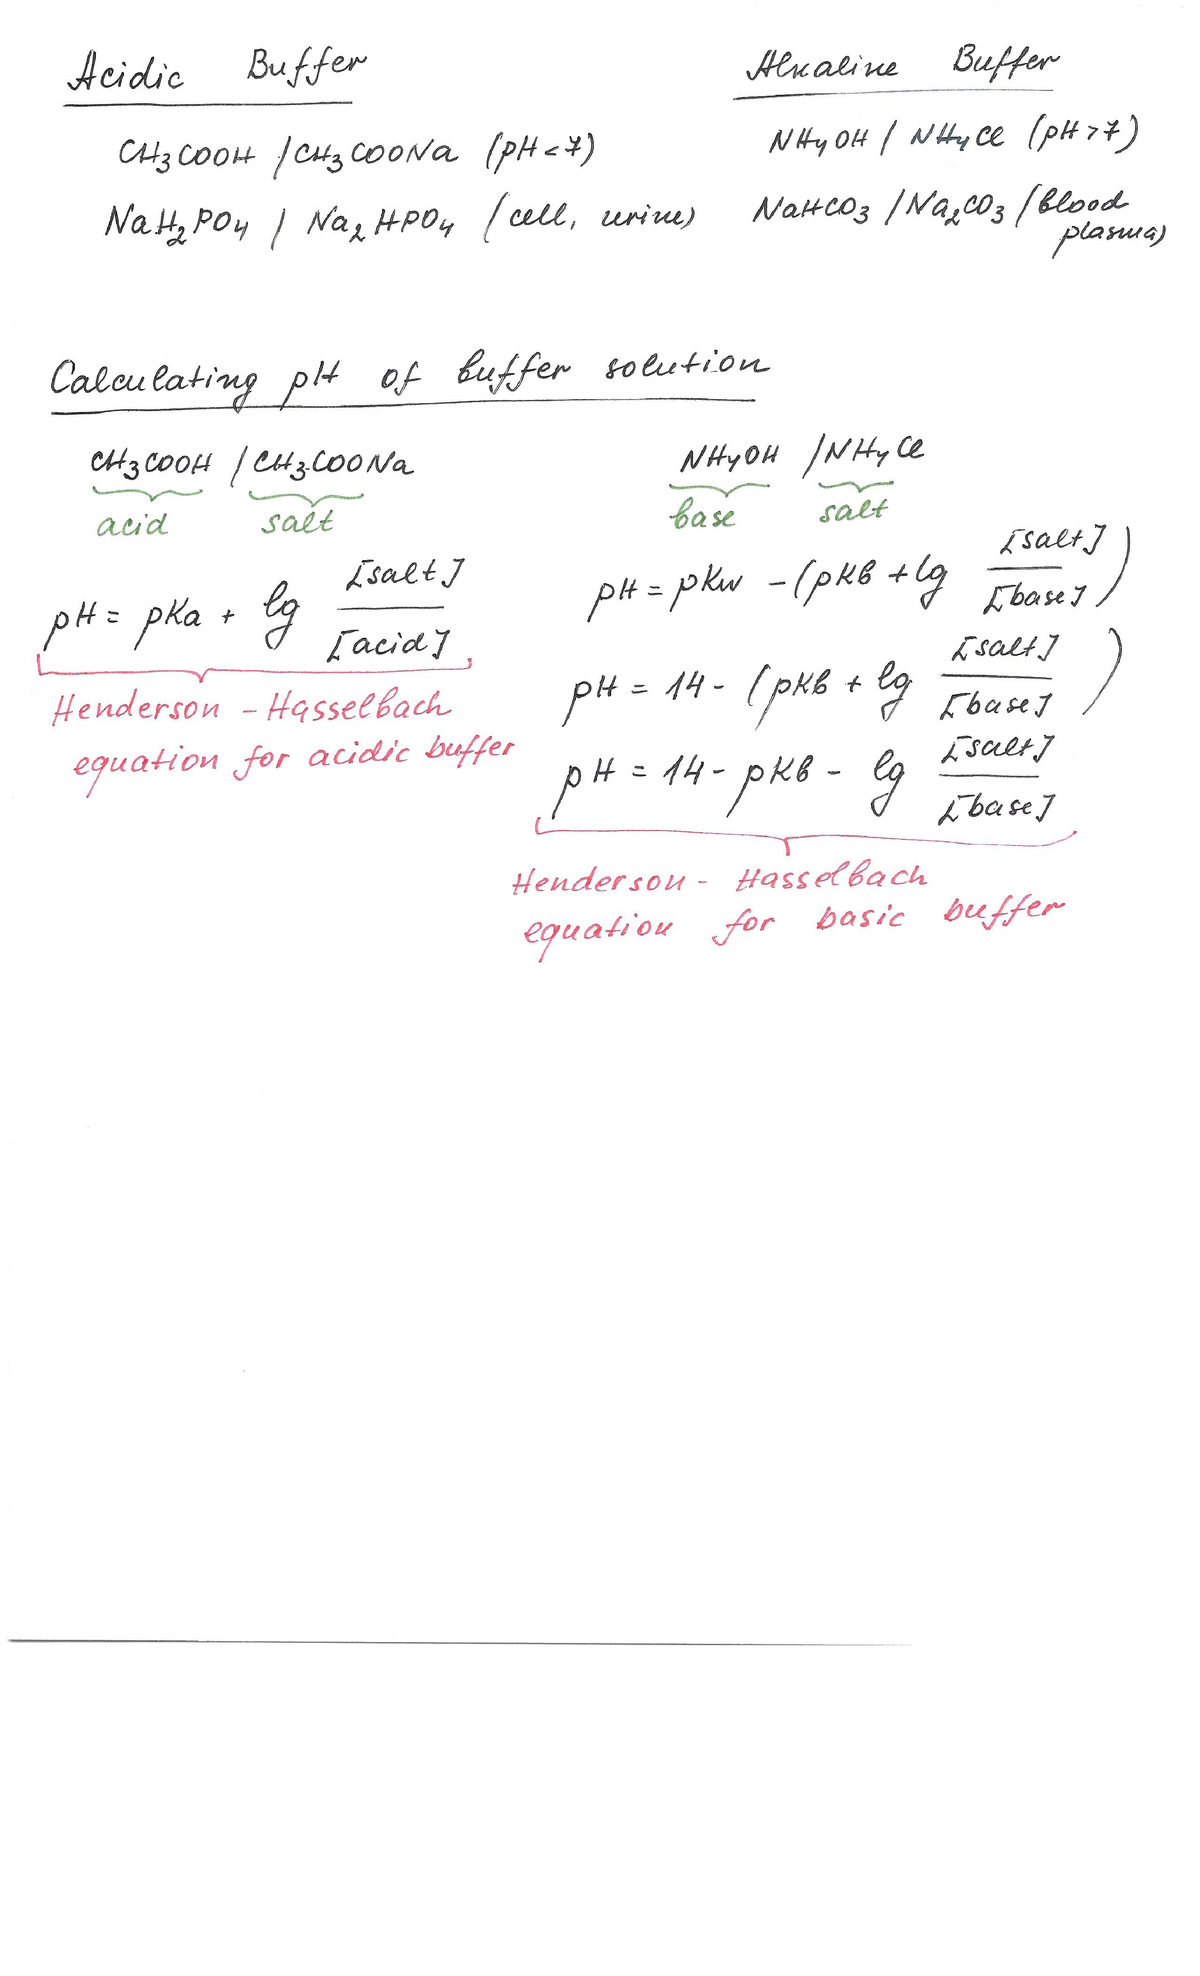 Acidic Buffer
CH3COOH / CH3COONa (pH < 7)
NaH2PO4 / Na2HPO4 (cell, urine)
Alkaline Buffer
NH4OH / NH4Cl (pH > 7)
NaHCO3 / Na2CO3 (blood
plasma)
Calculating pH of buffer solution
CH3COOH / CH3COONa
acid salt
pH = pKa + lg [salt] / [acid]
Henderson - Hasselbach
equation for acidic buffer
NH4OH / NH4Cl
base salt
pH = pKw - (pKb + lg [salt] / [base])
pH = 14 - (pKb + lg [salt] / [base])
pH = 14 - pKb - lg [salt] / [base]
Henderson - Hasselbach
equation for basic buffer